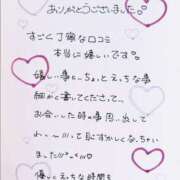 ありがとうございました
すごく丁寧な口コミ
本当に嬉しいです
嬉しい事にちょっとえっちな事
細かく書いてくださって、
お会いした時の事思い出して
わ〜〜///って恥ずかしくなっちゃい
ました///
優しくえっちな時間を